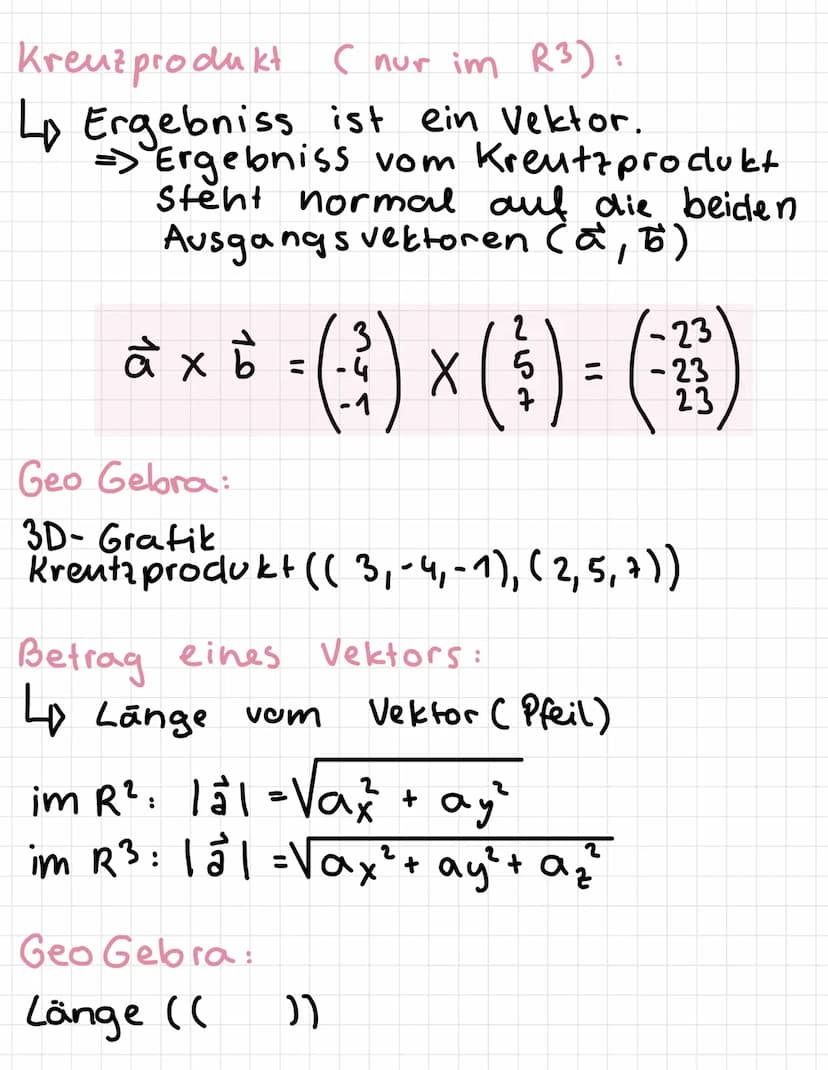 Kreuzprodukt (nur im R³):
↳ Ergebniss ist ein Vektor.
=> Ergebniss vom Kreutzprodukt
steht normal auf die beiden
Ausgangsvektoren (a⃗, b⃗)
a⃗ x b⃗ = (3 -4 -1) X (2 5 7) = (-23 -23 23)
Geo Gebra:
3D-Grafik
Kreutzprodukt((3,-4,-1),(2,5,7))
Betrag eines Vektors:
↳ Länge vom Vektor (Pfeil)
im R²: |a⃗| = √ax² + ay²
im R³: |a⃗| = √ax² + ay² + az²
GeoGebra:
Länge (( ))